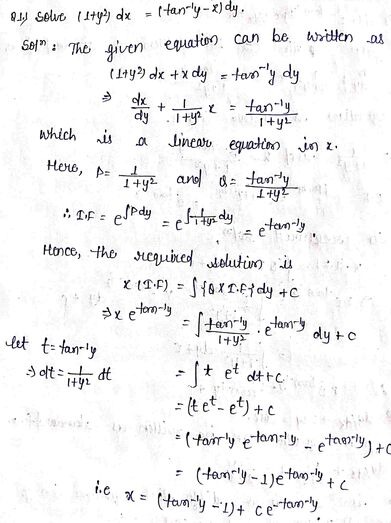 Q.1) Solve (1+y²) dx = (tan⁻¹y - x) dy.
Solⁿ : The given equation can be written as
(1+y²) dx + x dy = tan⁻¹y dy
⇒ dx/dy + 1/(1+y²) x = tan⁻¹y/(1+y²)
which is a linear equation in x.
Here, P = 1/(1+y²) and Q = tan⁻¹y/(1+y²)
∴ I.F = e^∫P dy = e^∫1/(1+y²) dy = e^tan⁻¹y.
Hence, the required solution is
x (I.F) = ∫{Q X I.F} dy + C
⇒ x e^tan⁻¹y = ∫ tan⁻¹y/(1+y²) . e^tan⁻¹y dy + C
let t = tan⁻¹y
⇒ dt = 1/(1+y²) dt
= ∫ t e^t dt + C
= (t e^t - e^t) + C
= (tan⁻¹y e^tan⁻¹y - e^tan⁻¹y) + C
= (tan⁻¹y - 1) e^tan⁻¹y + C
i.e x = (tan⁻¹y - 1) + C e^-tan⁻¹y